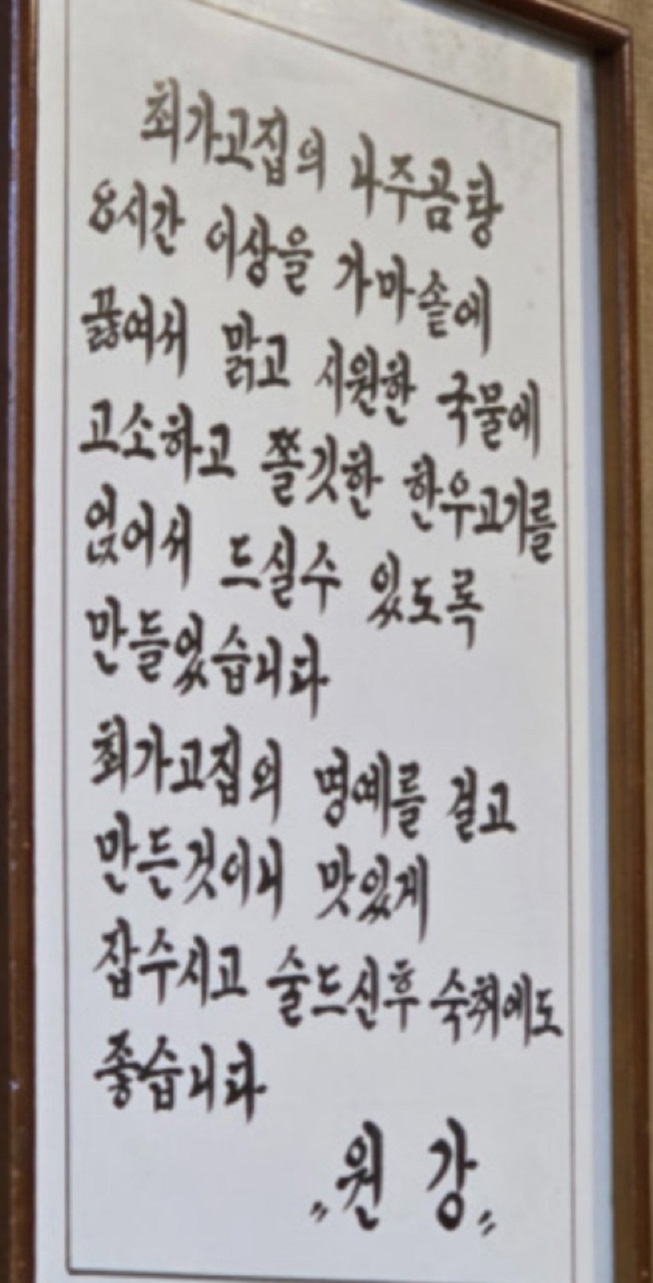 최가고집의 나주곰탕
8시간 이상을 가마솥에
끓여서 맑고 시원한 국물에
고소하고 쫄깃한 한우고기를
얹어서 드실수 있도록
만들었습니다
최가고집의 명예를 걸고
만든것이니 맛있게
잡수시고 술드신후 숙취에도
좋습니다
〃원 강〃